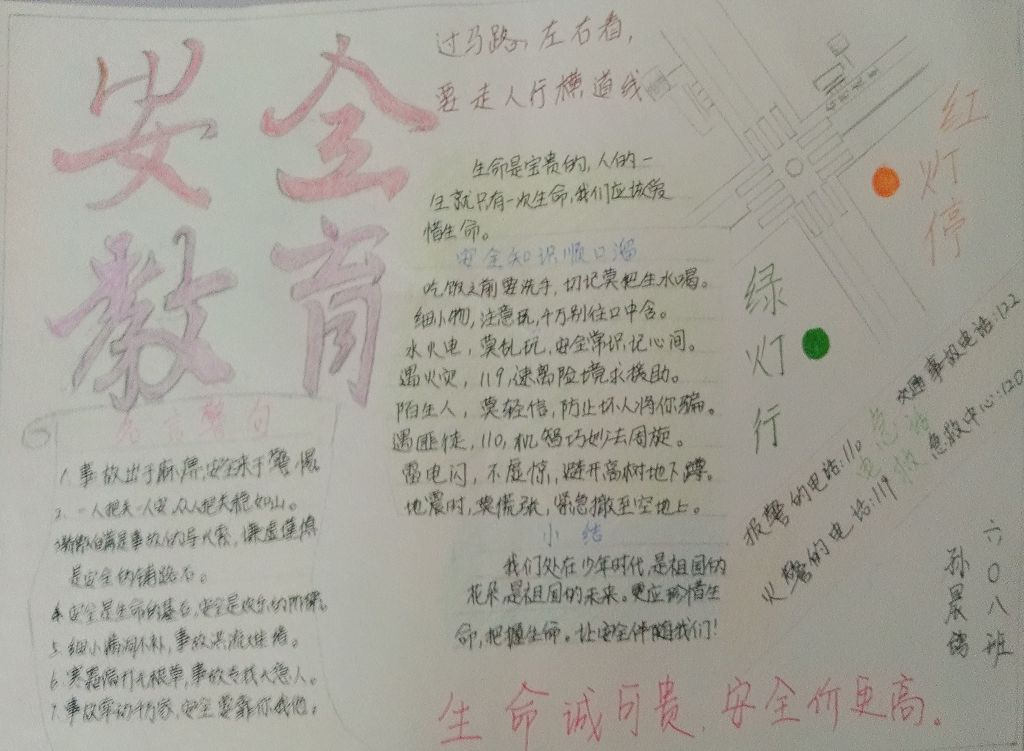 安全
教育
过马路，左右看，
要走人行横道线
生命是宝贵的，人的一
生就只有一次生命，我们应该爱
惜生命。
安全知识顺口溜
吃饭之前要洗手，切记莫把生水喝。
细小物，注意玩，千万别往口中含。
水火电，莫乱玩，安全常识记心间。
遇火灾，119，速离险境求援助。
陌生人，莫轻信，防止坏人将你骗。
遇匪徒，110，机智巧妙去周旋。
雷电闪，不屁惊，避开高树地下蹲。
地震时，莫慌张，紧急撤至空地上。
小结
我们处在少年时代，是祖国的
花朵，是祖国的未来。更应珍惜生
命，把握生命。让安全伴随我们！
名言警句
1. 事故出于麻痹，安全来于警惕
2. 一人把关一人安，众人把关稳如山。
3. 骄傲自满是事故的导火索，谦虚谨慎
是安全的铺路石。
4. 安全是生命的基石，安全是欢乐的阶梯。
5. 细小漏洞不补，事故洪流难堵。
6. 寒霜偏打无根草，事故专找大意人。
7. 事故牵动千万家，安全要靠你我他。
红灯停
绿灯行
交通事故电话：122
急救中心：120
急救
电话
报警的电话：110
火警的电话：119
六〇八班
孙晨
生命诚可贵，安全价更高。